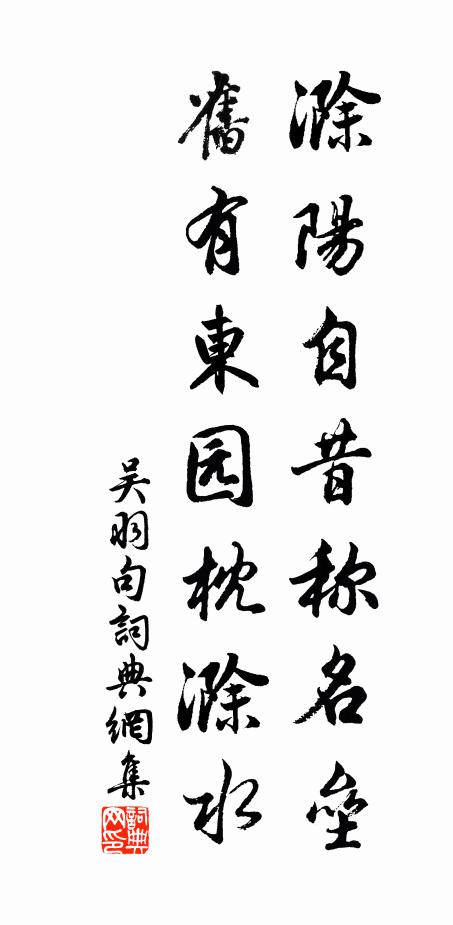 滁陽自昔称名壘
舊有東园枕滁水
吴羽句詞典網集
詞典网印